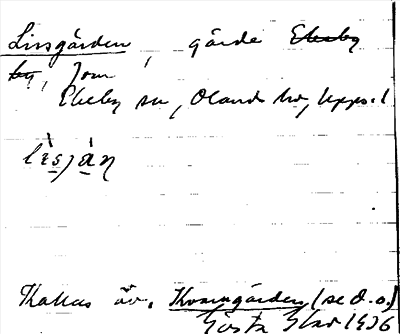 Lissgården, gärde ~~Ekeby~~
~~by~~, Tom
Ekeby sn, Olands hd, Upps. l
lìsjàn
Kallas äv. Kvarngården (se d. o.)
Gösta 1936